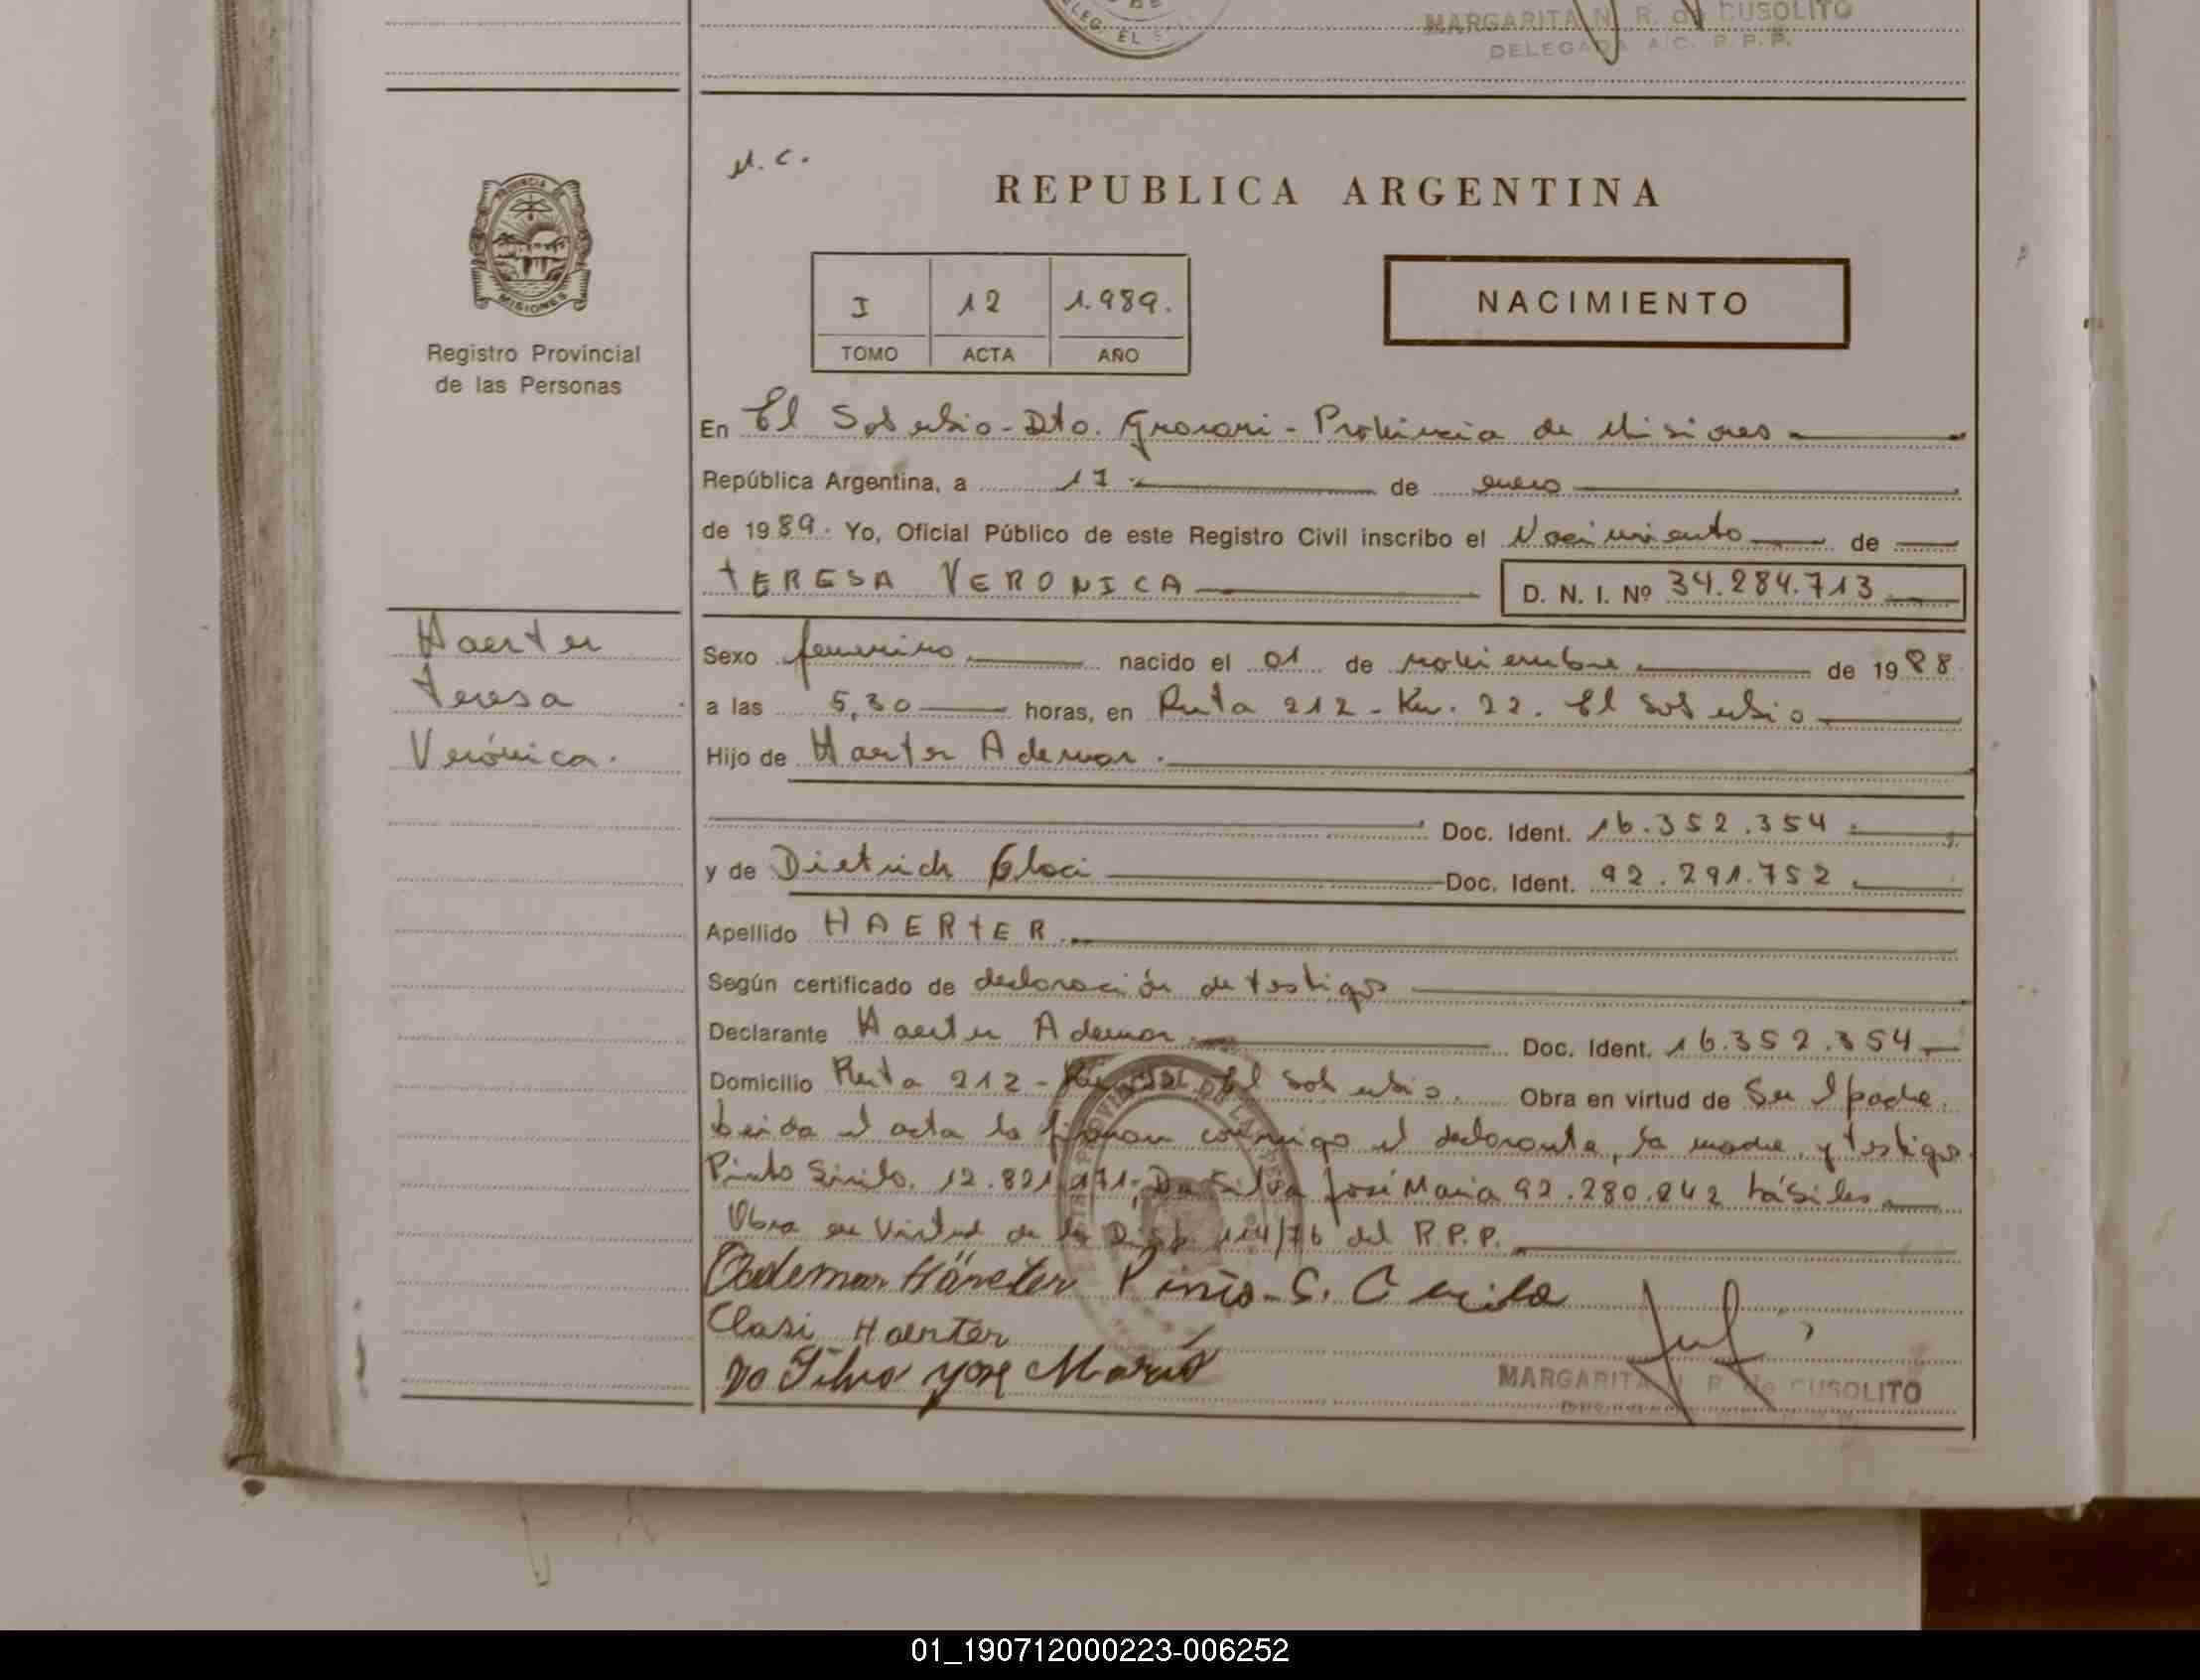 DELEG. EL S
MARGARITA N. R. de CUSOLITO
DELEGADA A/C. R. P. P.
N. C.
PROVINCIA DE
MISIONES
Registro Provincial
de las Personas
REPUBLICA ARGENTINA
I 12 1.989.
TOMO ACTA AÑO
NACIMIENTO
En El Soberbio - Dto. Guarani - Provincia de Misiones
República Argentina, a 17 de enero
de 1989. Yo, Oficial Público de este Registro Civil inscribo el Nacimiento de
TERESA VERONICA D. N. I. Nº 34.284.713
Haerter
Teresa
Verónica.
Sexo femenino nacido el 01 de noviembre de 1988
a las 5,30 horas, en Ruta 212 - Km. 22. El Soberbio
Hijo de Haerter Ademar.
Doc. Ident. 16.352.354
y de Dietrich Claci Doc. Ident. 92.291.752
Apellido HAERTER
Según certificado de declaración de testigos
Declarante Haerter Ademar Doc. Ident. 16.352.354
Domicilio Ruta 212 - El Soberbio. Obra en virtud de Ser el padre.
Leida el acta la firman conmigo el declarante, la madre y testigos
Pinto Sirilo. 12.821.171; Da Silva José Maria 92.280.242 hábiles
Obra en Virtud de la Disp. 114/76 del R.P.P.
Ademar Härter Pinto S. Cirilo
Clasi Haerter
Da Silva Jose Maria
MARGARITA N. R. de CUSOLITO
01_190712000223-006252